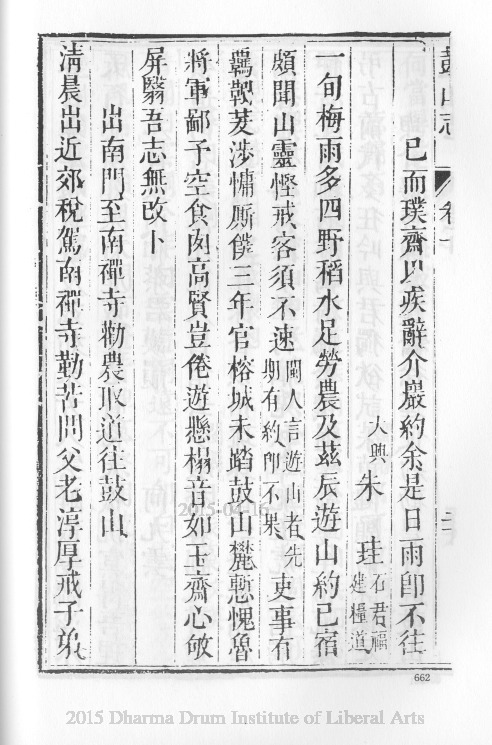 鼓山志 卷十
已而璞齋以疾辭介巖約余是日雨卽不往
大興朱珪石君福建糧道
一旬梅雨多四野稻水足勞農及茲辰遊山約已宿
頗聞山靈慳戒客須不速閩人言遊山者先期有約卽不果吏事有
羈靮芟涉慵厮僕三年官榕城未踏鼓山麓慙愧魯
將軍鄙子空食肉高賢豈倦遊懸榻音如玉齋心敏
屏翳吾志無改卜
出南門至南禪寺勸農取道往鼓山
淸晨出近郊稅駕南禪寺勤苦問父老淳厚戒子弟
2015-04-16
662
2015 Dharma Drum Institute of Liberal Arts